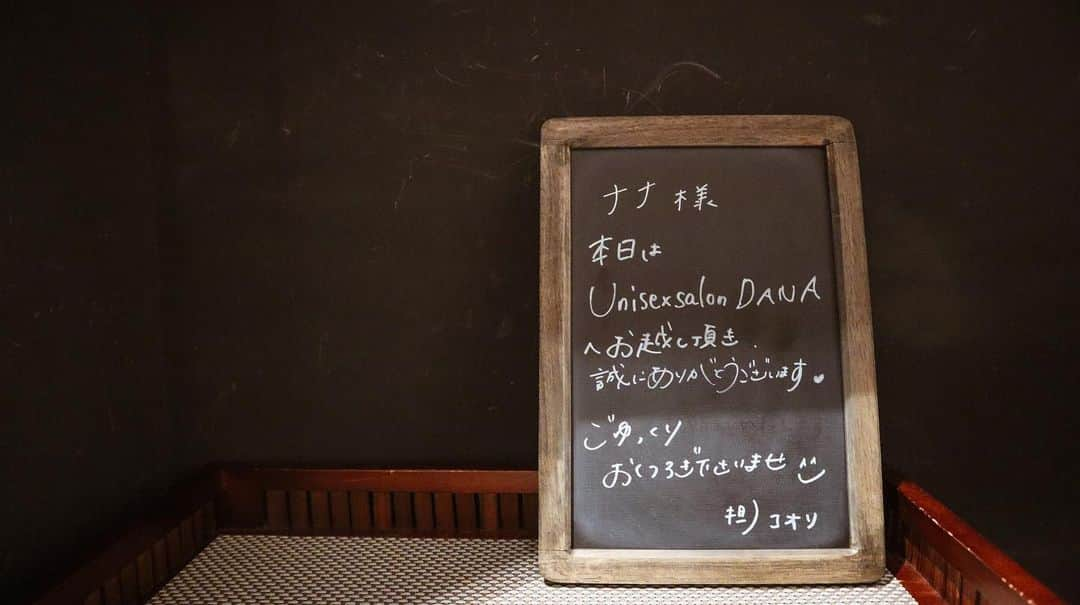 ナナ 様
本日は
Unisexsalon DANA
へお越し頂き
誠にありがとうございます
ごゆっくり
おくつろぎ下さいませ
担) コオリ